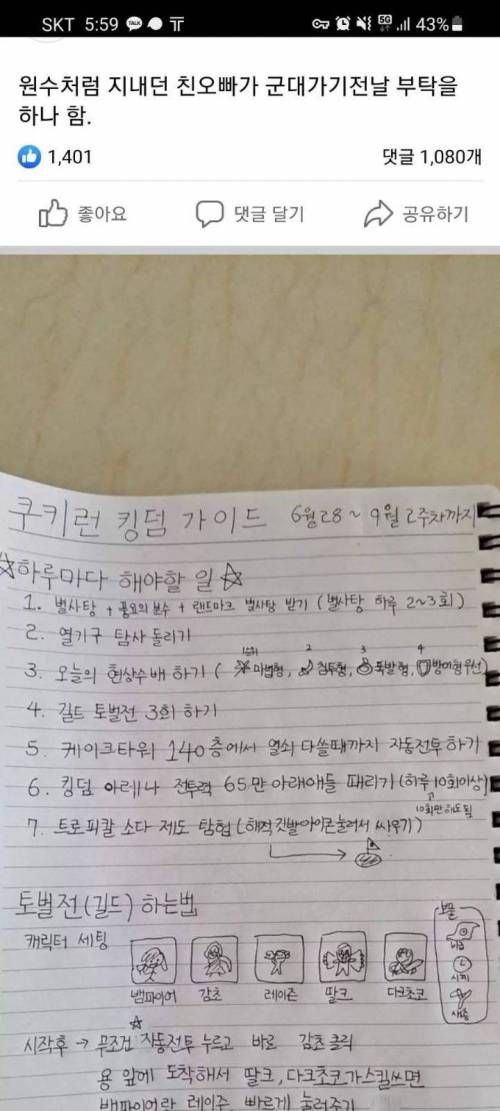 SKT 5:59 TALK 5G 43%
원수처럼 지내던 친오빠가 군대가기전날 부탁을
하나 함.
1,401 댓글 1,080개
좋아요 댓글 달기 공유하기
쿠키런 킹덤 가이드 6월28 ~ 9월 2주차까지
☆하루마다 해야할 일☆
1. 별사탕 + 풍요의 분수 + 랜드마크 별사탕 받기 (별사탕 하루 2~3회)
2. 열기구 탐사 돌리기
3. 오늘의 현상수배 하기 ( 1순위 마법형, 2 침투형, 3 폭발형, 4 방어형 우선)
4. 길드 토벌전 3회 하기
5. 케이크타워 140층에서 열쇠 다쓸때까지 자동전투 하기
6. 킹덤 아레나 전투력 65만 아래애들 때리기 (하루 10회이상)
10회만해도 됨
7. 트로피칼 소다 제도 탐험 (해적깃발아이콘눌러서 싸우기)
토벌전(길드) 하는법
보물
캐릭터 세팅
뱀파이어 감초 레이즌 딸크 다크초코
시작후 → 무조건 자동전투 누르고 바로 감초 클릭
용 앞에 도착해서 딸크, 다크초코가 스킬쓰면
뱀파이어랑 레이즌 빠르게 눌러주기